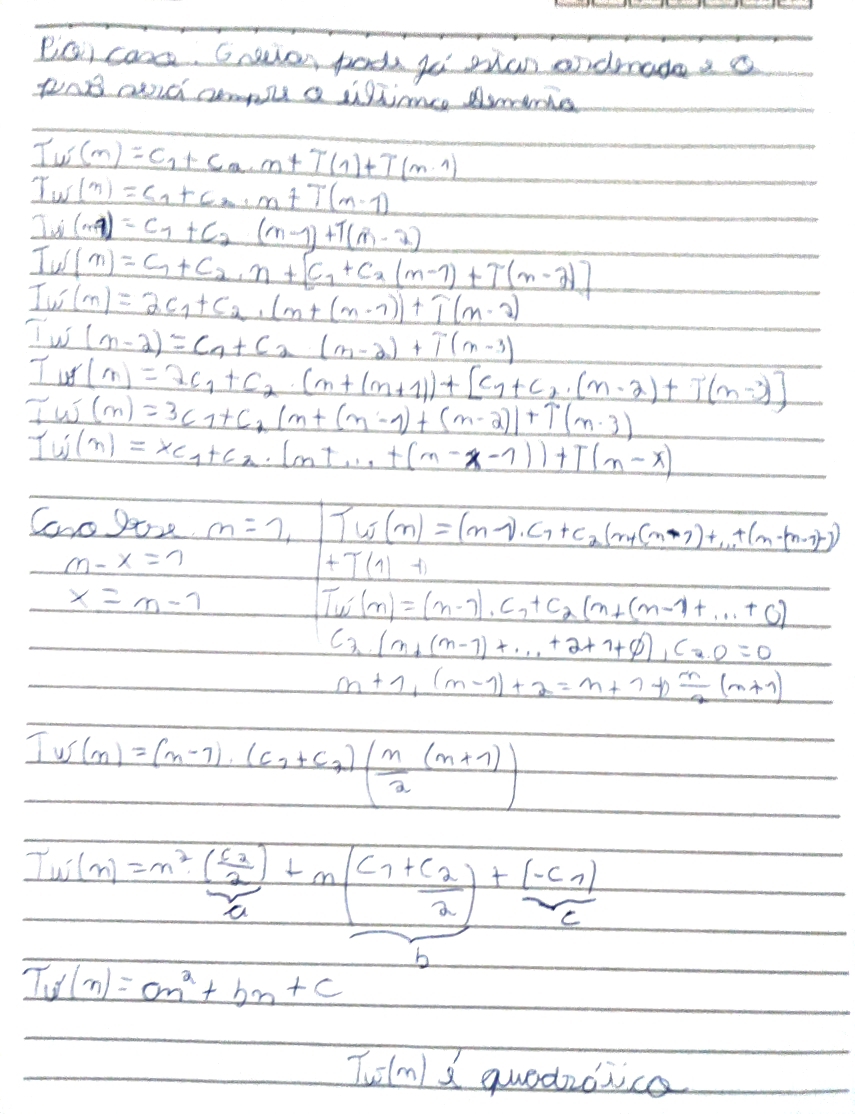 Pior caso: O vetor pode já estar ordenado e o
pivô será sempre o último elemento
Tw(n) = C1 + C2.n + T(1) + T(n-1)
Tw(n) = C1 + C2.n + T(n-1)
Tw(n-1) = C1 + C2 (n-1) + T(n-2)
Tw(n) = C1 + C2.n + [C1 + C2 (n-1) + T(n-2)]
Tw(n) = 2C1 + C2.(n + (n-1)) + T(n-2)
Tw(n-2) = C1 + C2 (n-2) + T(n-3)
Tw(n) = 2C1 + C2.(n + (n+1)) + [C1 + C2.(n-2) + T(n-3)]
Tw(n) = 3C1 + C2 (n + (n-1) + (n-2)) + T(n-3)
Tw(n) = xC1 + C2.(n + ... + (n-x-1)) + T(n-x)
Caso base n = 1,
n - x = 1
x = n - 1
Tw(n) = (n-1).C1 + C2 (n+(n+1)+...+(n-(n-1)-1)
+ T(1)
Tw(n) = (n-1).C1 + C2 (n + (n-1) + ... + 0)
C2.(n + (n-1) + ... + 2 + 1 + 0), C2.0 = 0
n+1, (n-1)+2 = n+1 → n/2 (n+1)
Tw(n) = (n-1).(C1 + C2) (n/2 (n+1))
Tw(n) = n².(C2/2) + n (C1 + C2/2) + (-C1)
a
b
c
Tw(n) = an² + bn + c
Tw(n) é quadrática